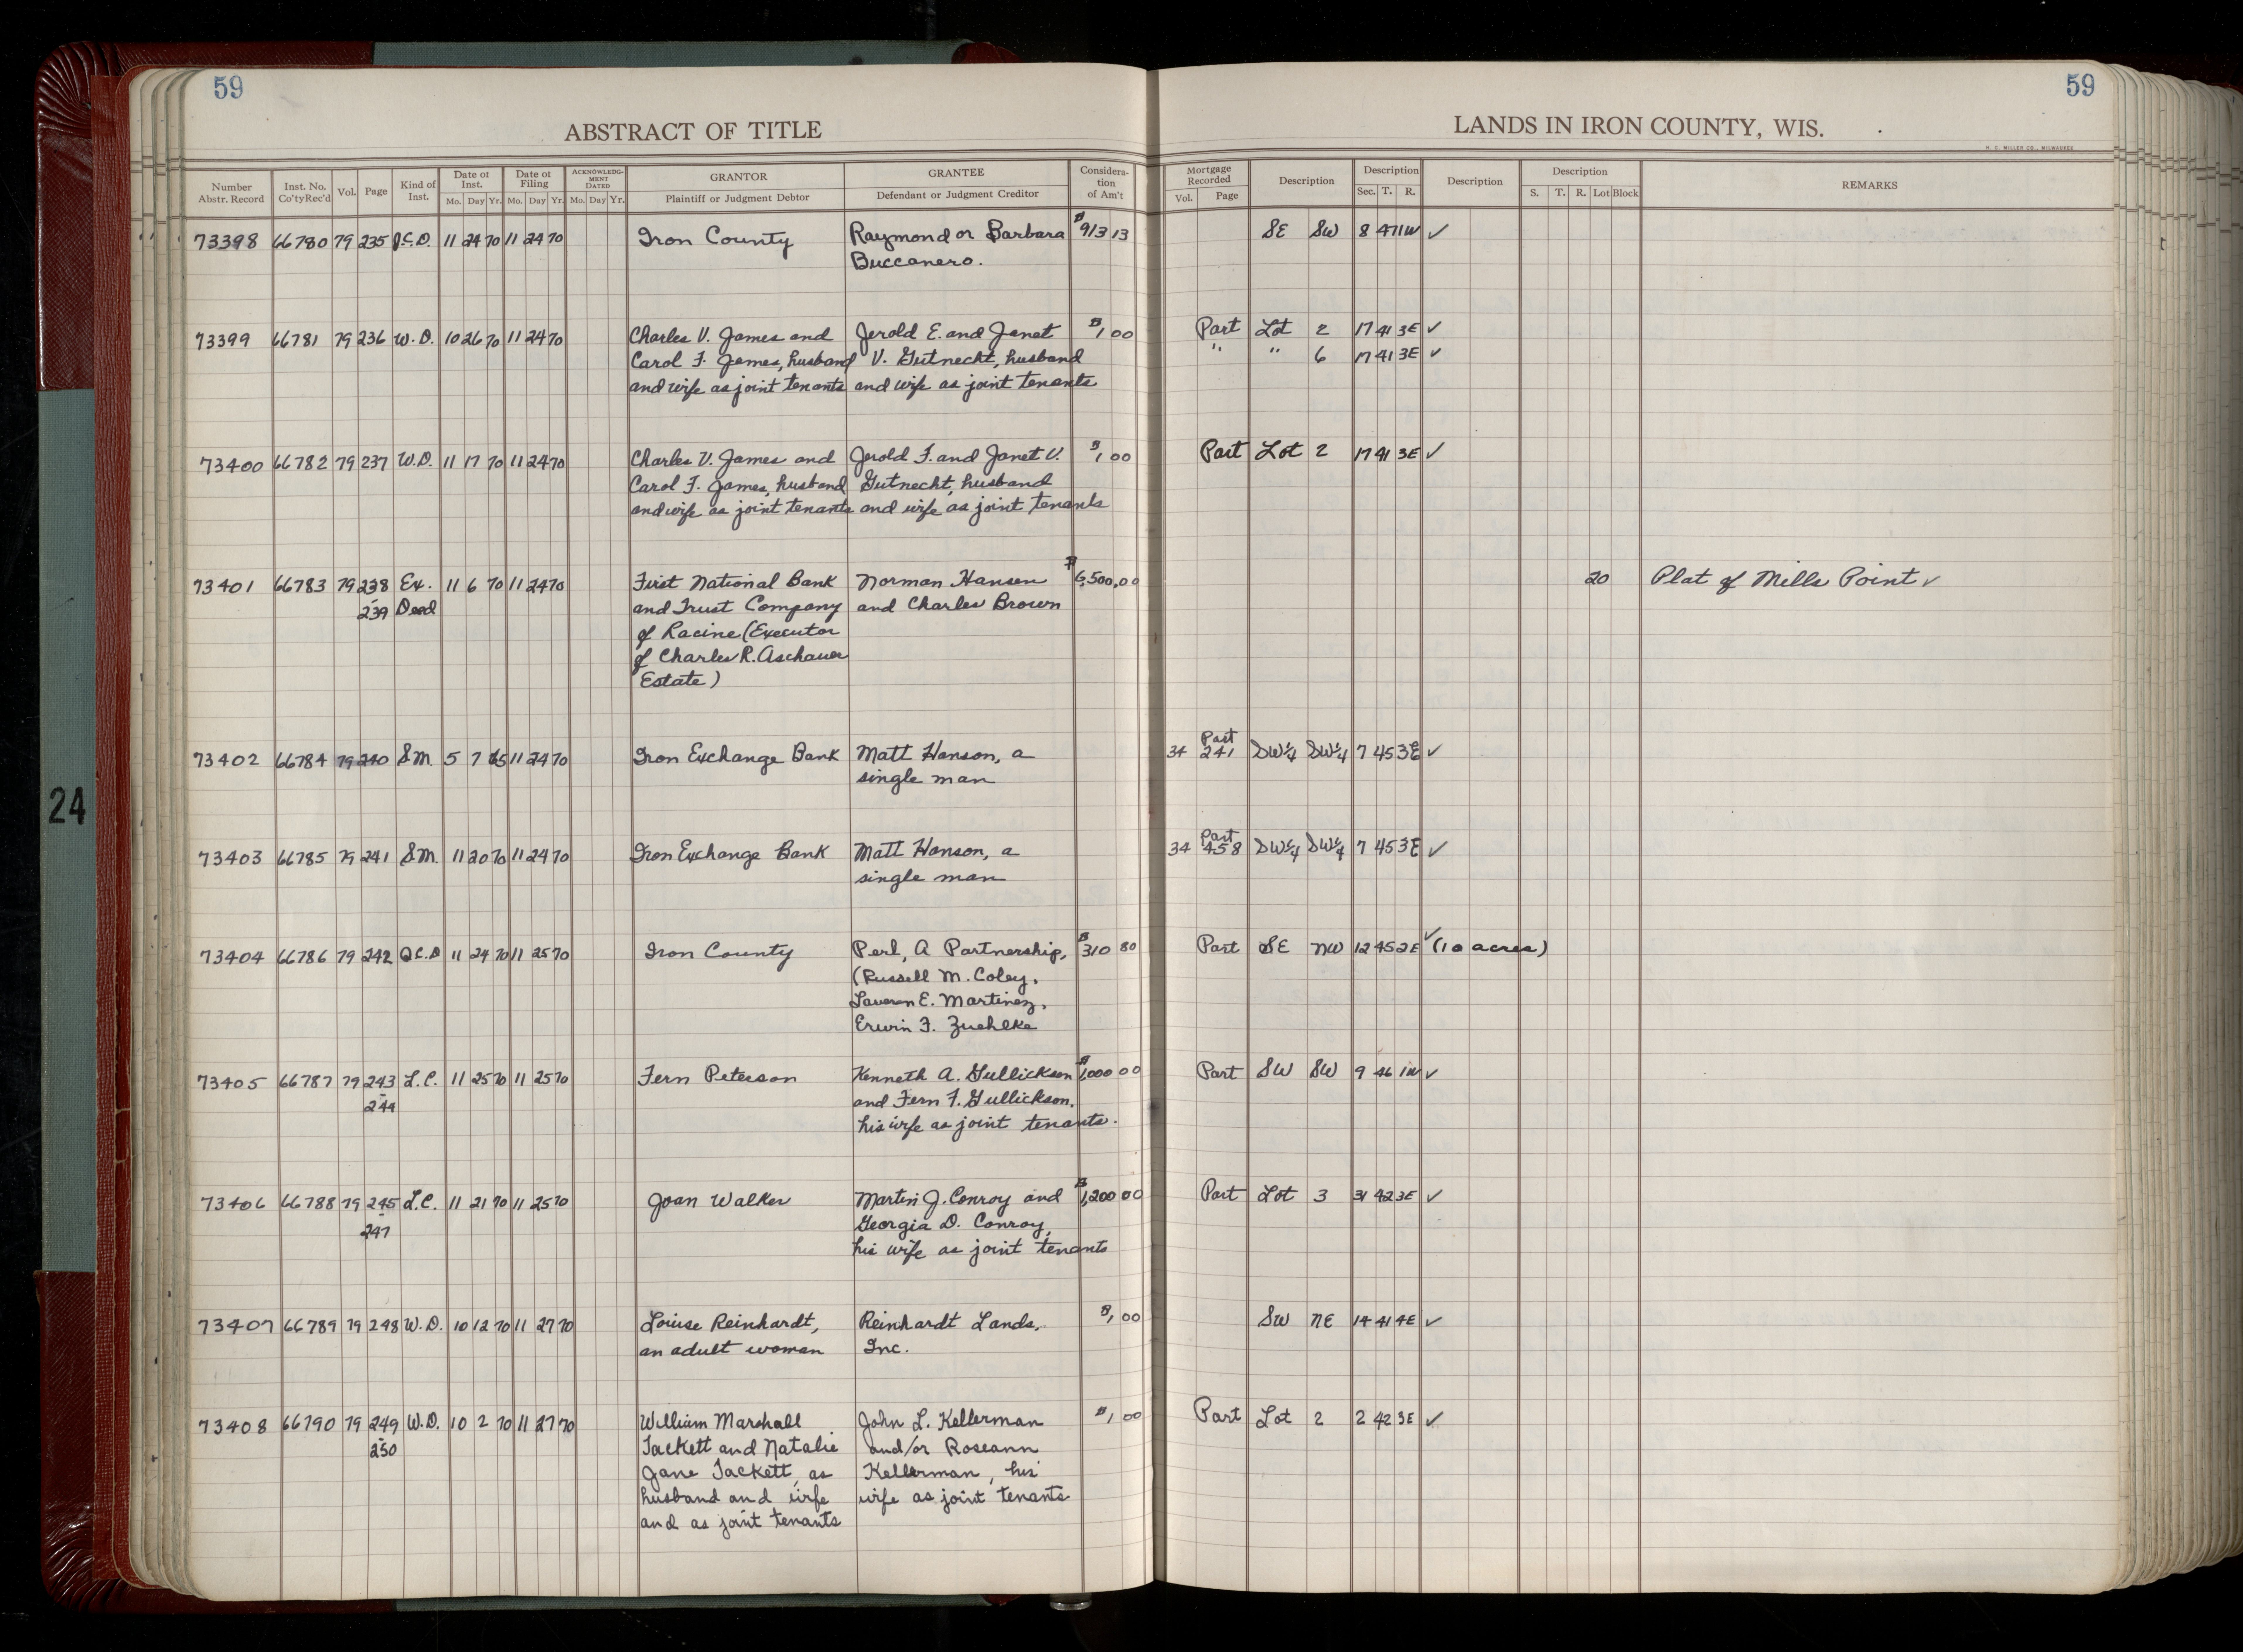 59
59
ABSTRACT OF TITLE
LANDS IN IRON COUNTY, WIS.
H. C. MILLER CO., MILWAUKEE
Number Abstr. Record
Inst. No. Co'ty Rec'd
Vol.
Page
Kind of Inst.
Date of Inst.
Mo. Day Yr.
Date of Filing
Mo. Day Yr.
ACKNOWLEDG-MENT DATED
Mo. Day Yr.
GRANTOR
Plaintiff or Judgment Debtor
GRANTEE
Defendant or Judgment Creditor
Considera-tion of Am't
Mortgage Recorded
Vol. Page
Description
Description
Sec. T. R.
Description
Description
S. T. R. Lot Block
REMARKS
73398 66780 79 235 Q.C.D. 11 24 70 11 24 70 Iron County Raymond or Barbara $913 13 SE SW 8 47 1W ✓
Buccanero.
73399 66781 79 236 W.D. 10 26 70 11 24 70 Charles V. James and Jerold E. and Janet $1,00 Part Lot 2 17 41 3E ✓
Carol F. James, husband V. Gutnecht, husband " " 6 17 41 3E ✓
and wife as joint tenants and wife as joint tenants
73400 66782 79 237 W.D. 11 17 70 11 24 70 Charles V. James and Jerold F. and Janet V. $1,00 Part Lot 2 17 41 3E ✓
Carol F. James, husband Gutnecht, husband
and wife as joint tenants and wife as joint tenants
73401 66783 79 238 Ex. 11 6 70 11 24 70 First National Bank Norman Hansen $6,500,00 20 Plat of Mills Point ✓
- 239 Deed and Trust Company and Charles Brown
of Racine (Executor
of Charles R. Aschauer
Estate)
73402 66784 79 240 S.M. 5 7 65 11 24 70 Iron Exchange Bank Matt Hanson, a 34 Part 241 SW¼ SW¼ 7 45 3E ✓
single man
73403 66785 79 241 S.M. 11 20 70 11 24 70 Iron Exchange Bank Matt Hanson, a 34 Part 458 SW¼ SW¼ 7 45 3E ✓
single man
73404 66786 79 242 Q.C.D 11 24 70 11 25 70 Iron County Perl, A Partnership, $310 80 Part SE NW 12 45 2E ✓ (10 acres)
(Russell M. Coley,
E. Martinez,
Erwin F. Zuehlke
73405 66787 79 243 L.C. 11 25 70 11 25 70 Fern Peterson Kenneth A. Gullickson $1,000 00 Part SW SW 9 46 1W ✓
- 244 and Fern F. Gullickson,
his wife as joint tenants.
73406 66788 79 245 L.C. 11 21 70 11 25 70 Joan Walker Martin J. Conroy and $1,200 00 Part Lot 3 31 42 3E ✓
- 247 Georgia D. Conroy,
his wife as joint tenants
73407 66789 79 248 W.D. 10 12 70 11 27 70 Louise Reinhardt, Reinhardt Lands, $1,00 SW NE 14 41 4E ✓
an adult woman Inc.
73408 66790 79 249 W.D. 10 2 70 11 27 70 William Marshall John L. Kellerman $1,00 Part Lot 2 2 42 3E ✓
- 250 Tackett and Natalie and/or Roseann
Jane Tackett, as Kellerman, his
husband and wife wife as joint tenants
and as joint tenants
24